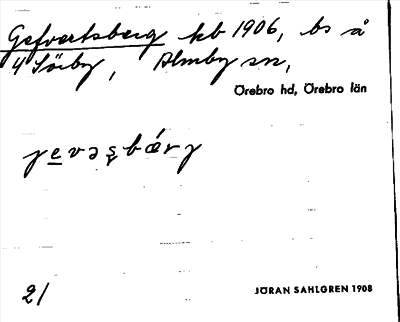 Gefvertsberg kb 1906, bs å
4 Sörby, Almby sn,
Örebro hd, Örebro län
jevəʂbǽrj
21
JÖRAN SAHLGREN 1908